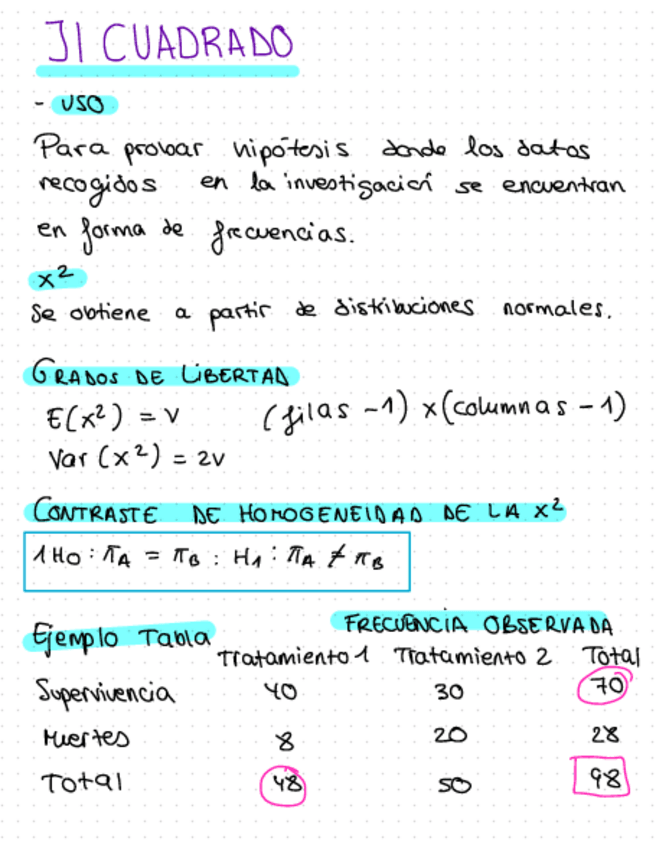 JI CUADRADO
- USO
Para probar hipótesis donde los datos
recogidos en la investigación se encuentran
en forma de frecuencias.
x²
Se obtiene a partir de distribuciones normales.
GRADOS DE LIBERTAD
E(x²) = v (filas -1) x (columnas - 1)
Var (x²) = 2v
CONTRASTE DE HOMOGENEIDAD DE LA x²
1 H0 : πA = πB : H1 : πA ≠ πB
Ejemplo Tabla FRECUENCIA OBSERVADA
Tratamiento 1 Tratamiento 2 Total
Supervivencia 40 30 70
Muertes 8 20 28
Total 48 50 98